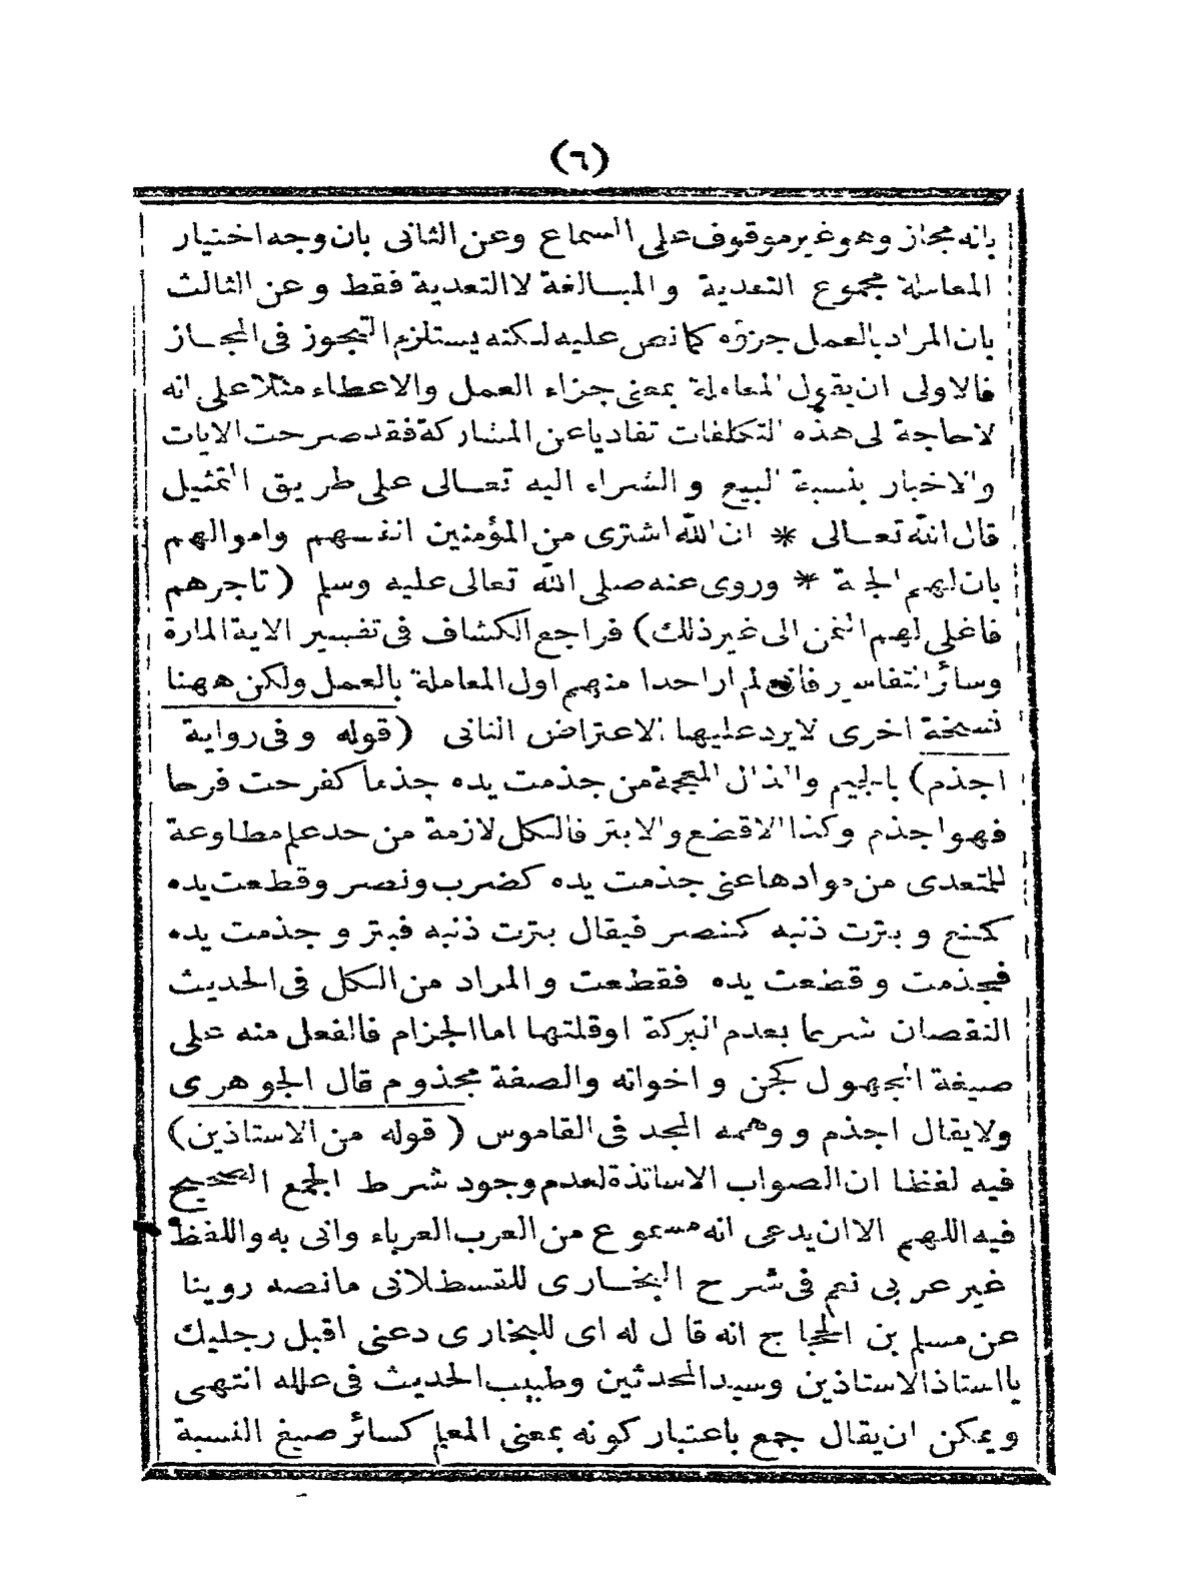 (٦)
بانه مجاز وهو غير موقوف على السماع وعن الثانى بان وجه اختيار
المعاملة مجموع التعدية والمبالغة لا التعدية فقط وعن الثالث
بان المراد بالعمل جزؤه كما نص عليه لكنه يستلزم التجوز فى المجاز
فالاولى ان يقول المعاملة بمعنى جزاء العمل والاعطاء مثلا على انه
لا حاجة لى هذه التكلفات تفاديا عن المشاركة فقد صرحت الايات
والاخبار بنسبة البيع والشراء اليه تعالى على طريق التمثيل
قال الله تعالى * ان الله اشترى من المؤمنين انفسهم واموالهم
بان لهم الجنة * وروى عنه صلى الله تعالى عليه وسلم (تاجرهم
فاغلى لهم الثمن الى غير ذلك) فراجع الكشاف فى تفسير الاية المارة
وسائر التفاسير فانى لم ار احدا منهم اول المعاملة بالعمل ولكن ههنا
نسخة اخرى لا يرد عليها الاعتراض الثانى (قوله وفى رواية
اجذم) بالجيم والذال المعجمة من جذمت يده جذما كفرحت فرحا
فهو اجذم وكذا الاقضع والابتر فالكل لازمة من حد علم مطاوعة
للمتعدى من موادها عنى جذمت يده كضرب ونصر وقطعت يده
كمنع وبترت ذنبه كنصر فيقال بترت ذنبه فبتر وجذمت يده
فجذمت وقضعت يده فقطعت والمراد من الكل فى الحديث
النقصان شرعا بعدم البركة اوقلتها اما الجزام فالفعل منه على
صيغة المجهول كجن واخواته والصفة مجذوم قال الجوهرى
ولا يقال اجذم ووهمه المجد فى القاموس (قوله من الاستاذين)
فيه لفظا ان الصواب الاساتذة لعدم وجود شرط الجمع الصحيح
فيه اللهم الا ان يدعى انه مسموع من العرب العرباء وانى به واللفظ
غير عربى نعم فى شرح البخارى للقسطلانى ما نصه روينا
عن مسلم بن الحجاج انه قال له اى للبخارى دعنى اقبل رجليك
يا استاذ الاستاذين وسيد المحدثين وطبيب الحديث فى علله انتهى
ويمكن ان يقال جمع باعتبار كونه بمعنى المعلم كسائر صيغ النسبة